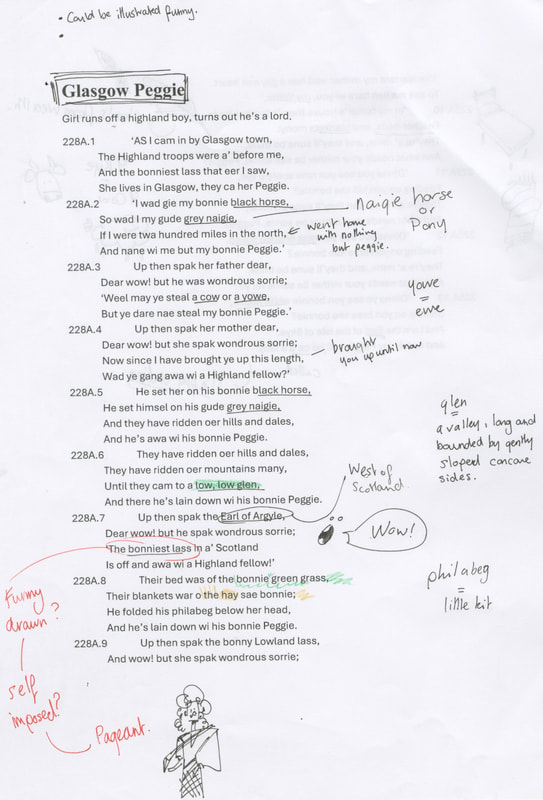 • Could be illustrated funny.
•
Glasgow Peggie
Girl runs off a highland boy, turns out he's a lord.
228A.1 'AS I cam in by Glasgow town,
The Highland troops were a' before me,
And the bonniest lass that eer I saw,
She lives in Glasgow, they ca her Peggie.
228A.2 'I wad gie my bonnie black horse,
So wad I my gude grey naigie,
If I were twa hundred miles in the north,
And nane wi me but my bonnie Peggie.'
Naigie horse
or
Pony
went home
with nothing
but peggie.
228A.3 Up then spak her father dear,
Dear wow! but he was wondrous sorrie;
'Weel may ye steal a cow or a yowe,
But ye dare nae steal my bonnie Peggie.'
yowe
=
ewe
228A.4 Up then spak her mother dear,
Dear wow! but she spak wondrous sorrie;
Now since I have brought ye up this length,
Wad ye gang awa wi a Highland fellow?'
brought
you up until now
228A.5 He set her on his bonnie black horse,
He set himsel on his gude grey naigie,
And they have ridden oer hills and dales,
And he's awa wi his bonnie Peggie.
glen
=
a valley, long and
bounded by gently
sloped concave
sides.
228A.6 They have ridden oer hills and dales,
They have ridden oer mountains many,
Until they cam to a low, low glen,
And there he's lain down wi his bonnie Peggie.
West of
Scotland.
228A.7 Up then spak the Earl of Argyle,
Dear wow! but he spak wondrous sorrie;
'The bonniest lass in a' Scotland
Is off and awa wi a Highland fellow!'
Wow!
228A.8 Their bed was of the bonnie green grass,
Their blankets war o the hay sae bonnie;
He folded his philabeg below her head,
And he's lain down wi his bonnie Peggie.
philabeg
=
little kilt
228A.9 Up then spak the bonny Lowland lass,
And wow! but she spak wondrous sorrie;
Funny
drawn?
self
imposed?
Pageant.